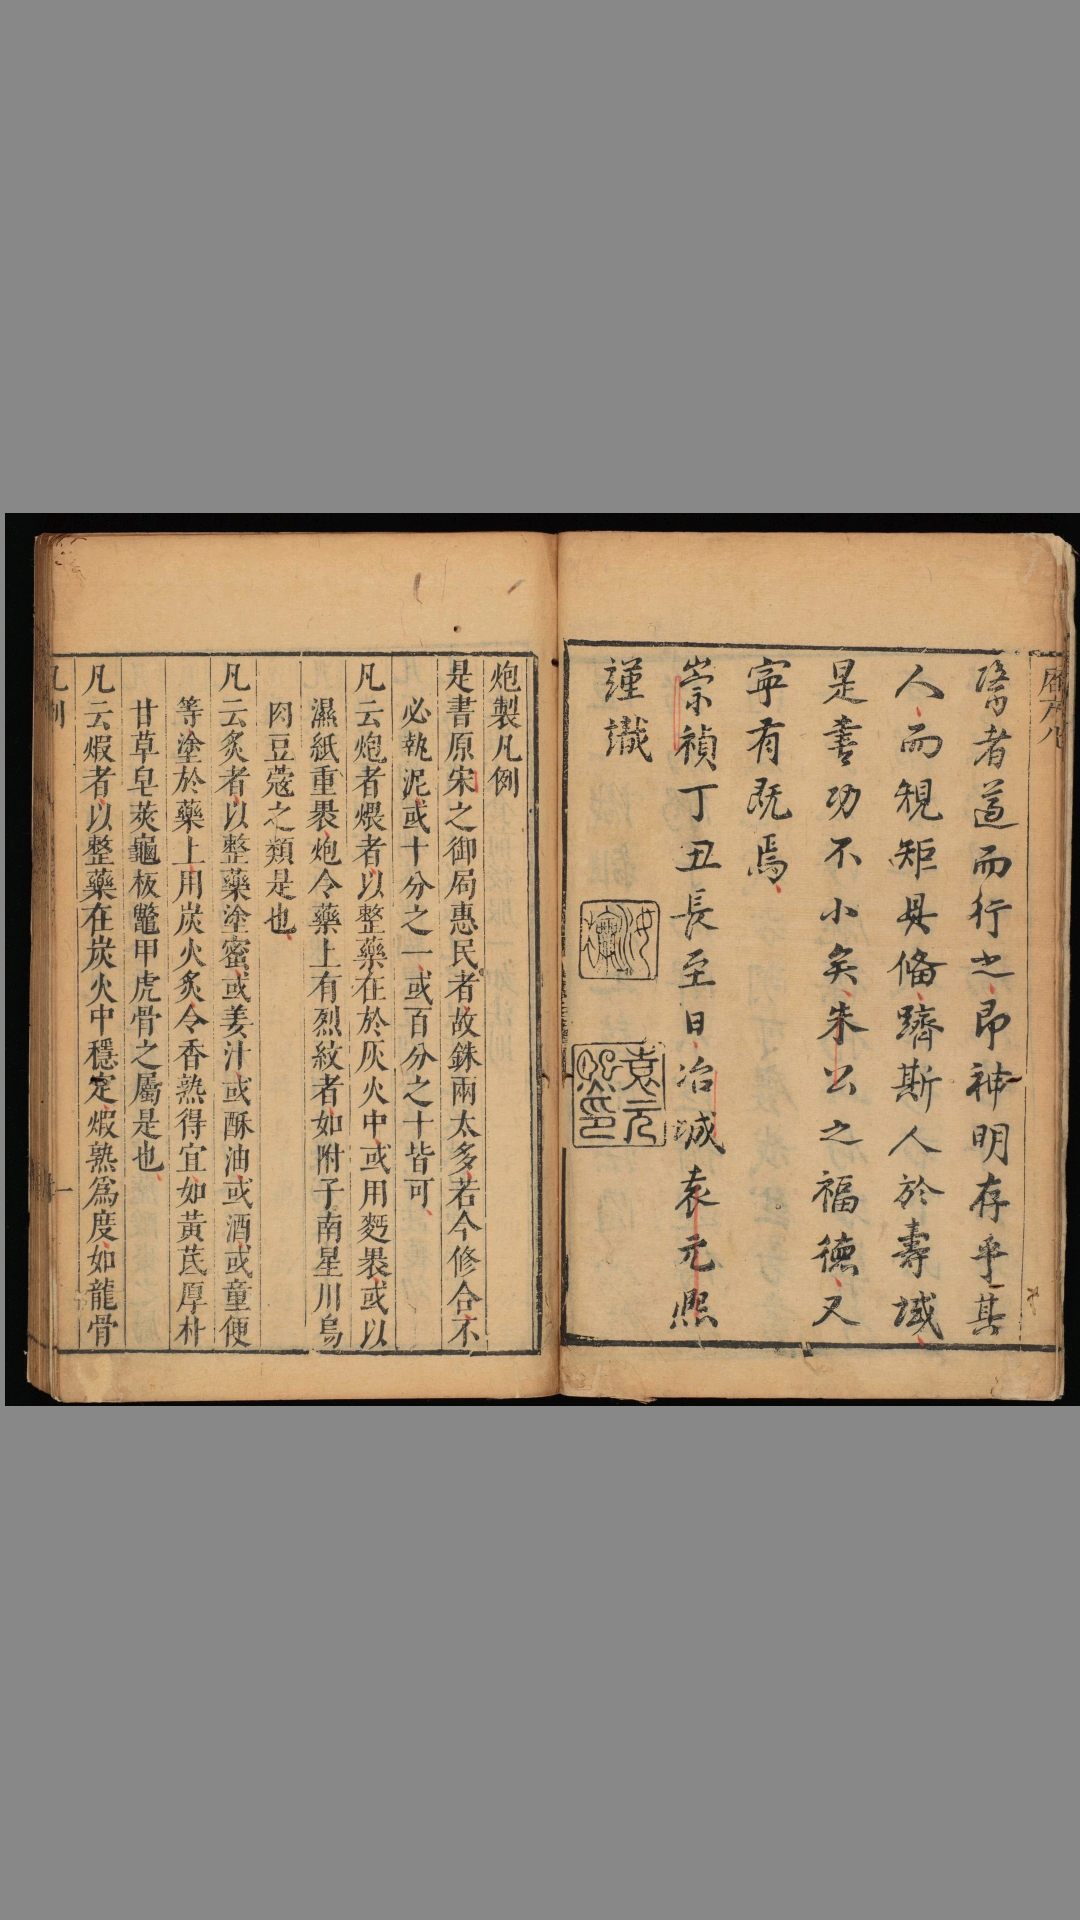 醫者遵而行之即神明存乎其
人而規矩具俻躋斯人於壽域
是書功不小矣朱公之福德又
寕有旣焉
崇禎丁丑長至日冶城袁元熙
謹識
袁元熙印
炮製凡例
是書原宋之御局惠民者故銖兩太多若今修合不
必執泥或十分之一或百分之十皆可
凡云炮者煨者以整藥在於灰火中或用麪褁或以
濕紙重褁炮令藥上有烈紋者如附子南星川烏
肉豆蔻之類是也
凡云炙者以整藥塗蜜或姜汁或酥油或酒或童便
等塗於藥上用炭火炙令香熟得宜如黃茋厚朴
甘草皂莢龜板鼈甲虎骨之屬是也
凡云煆者以整藥在炭火中穩定煆熟爲度如龍骨
凡例
一